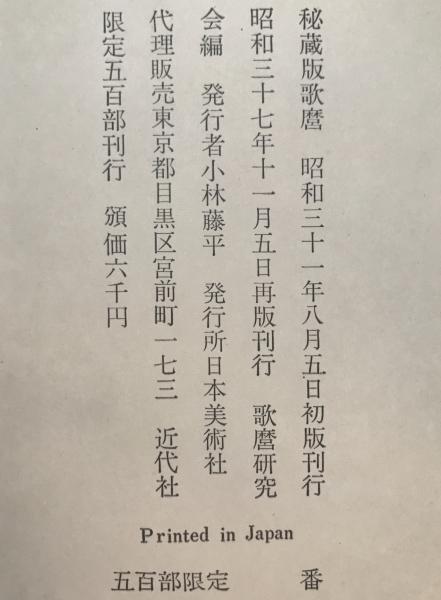 秘蔵版歌麿　昭和三十一年八月五日初版刊行
昭和三十七年十一月五日再版刊行　歌麿研究
会編　発行者小林藤平　発行所日本美術社
代理販売東京都目黒区宮前町一七三　近代社
限定五百部刊行　頒価六千円
Printed in Japan
五百部限定　　　番